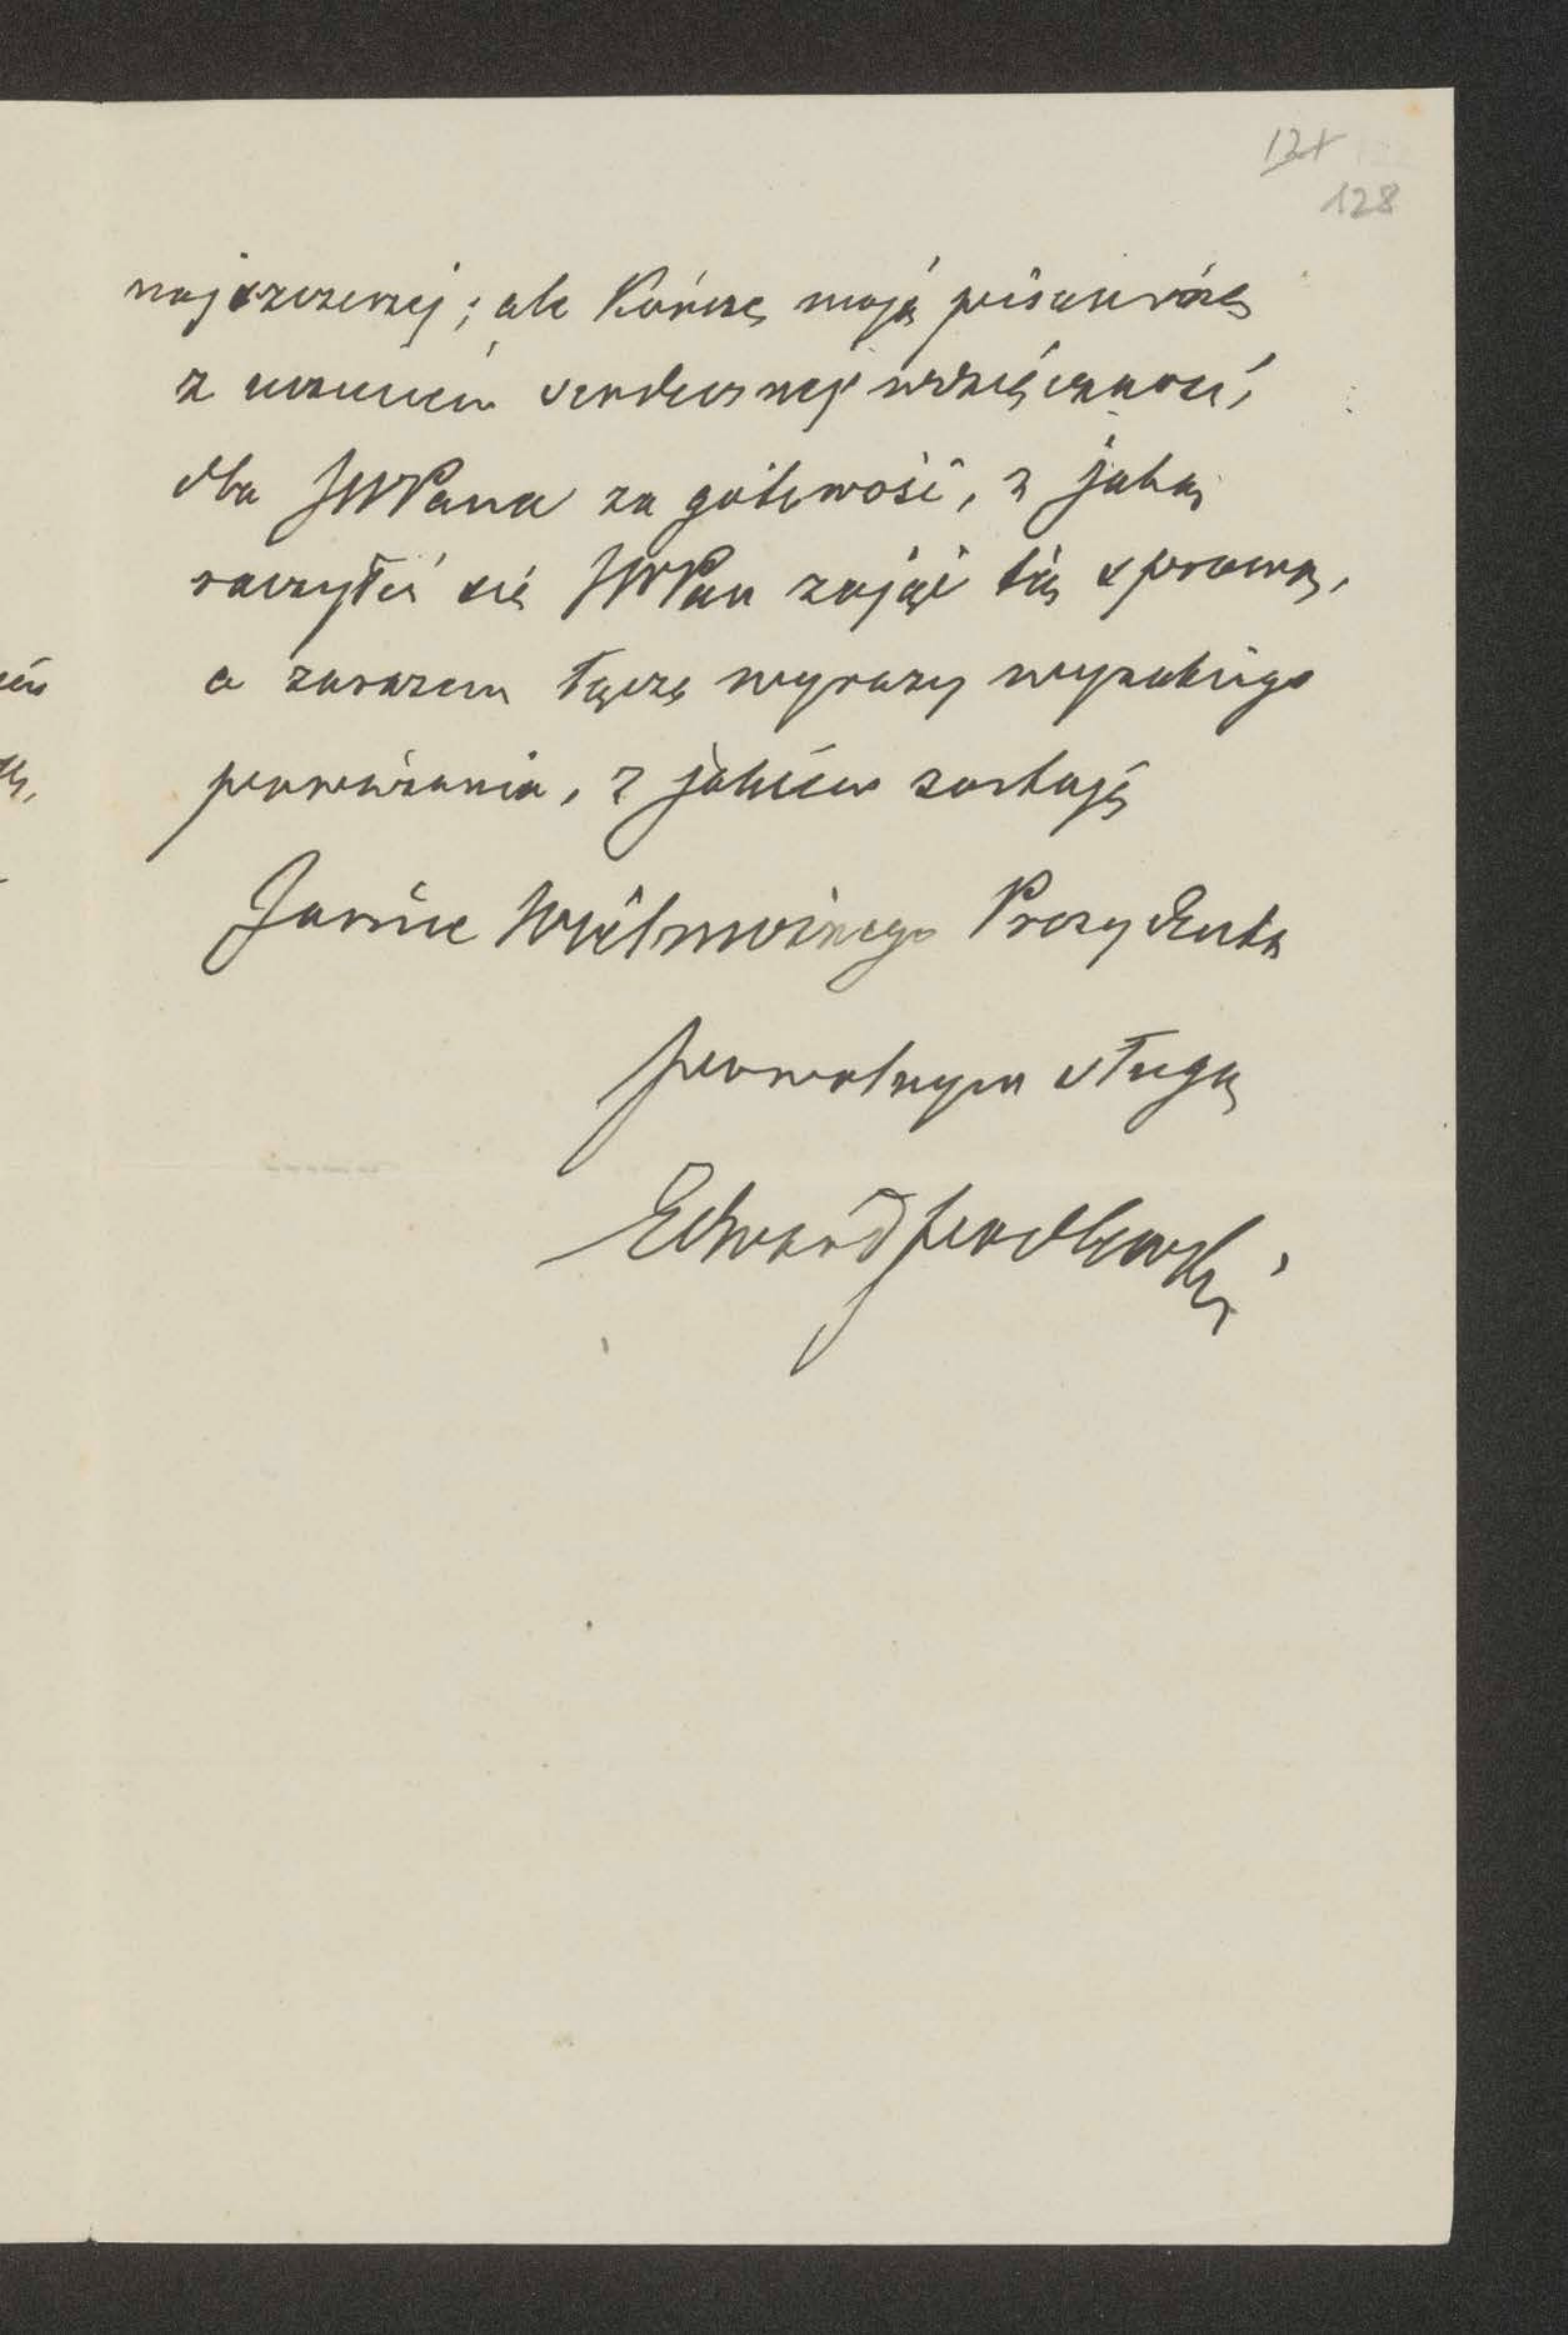 127
128
najszczerzej; ale kończę moją pisaninę
z uczuciem serdecznej wdzięczności,
dla JWPana za gotowość, z jaką
raczyłeś się JWPan zająć tą sprawą,
a zarazem łączę wyrazy wysokiego
poważania, z jakiém zostaję
Jaśnie Wielmożnego Prezydenta
powolnym sługą
Edward Jendlewski